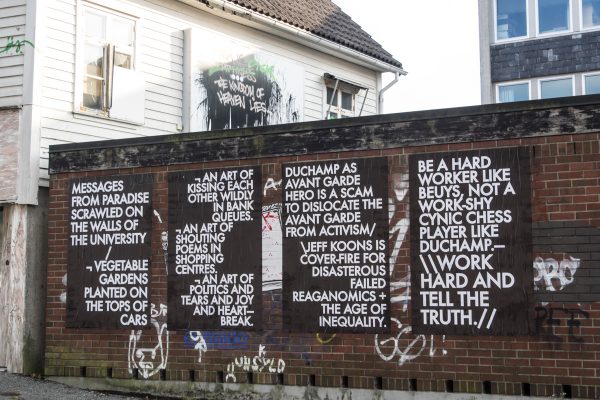 THE KINGDOM OF
HEAVEN
MESSAGES
FROM PARADISE
SCRAWLED ON
THE WALLS OF
THE UNIVERSITY
/
¬ VEGETABLE
GARDENS
PLANTED ON
THE TOPS OF
CARS
¬ AN ART OF
KISSING EACH
OTHER WILDLY
IN BANK
QUEUES.
¬ AN ART OF
SHOUTING
POEMS IN
SHOPPING
CENTRES.
¬ AN ART OF
POLITICS AND
TEARS AND JOY
AND HEART—
BREAK.
DUCHAMP AS
AVANT GARDE
HERO IS A SCAM
TO DISLOCATE THE
AVANT GARDE
FROM ACTIVISM/
\JEFF KOONS IS
COVER-FIRE FOR
DISASTEROUS
FAILED
REAGANOMICS +
THE AGE OF
INEQUALITY.
BE A HARD
WORKER LIKE
BEUYS, NOT A
WORK-SHY
CYNIC CHESS
PLAYER LIKE
DUCHAMP.—
\\WORK
HARD AND
TELL THE
TRUTH.//